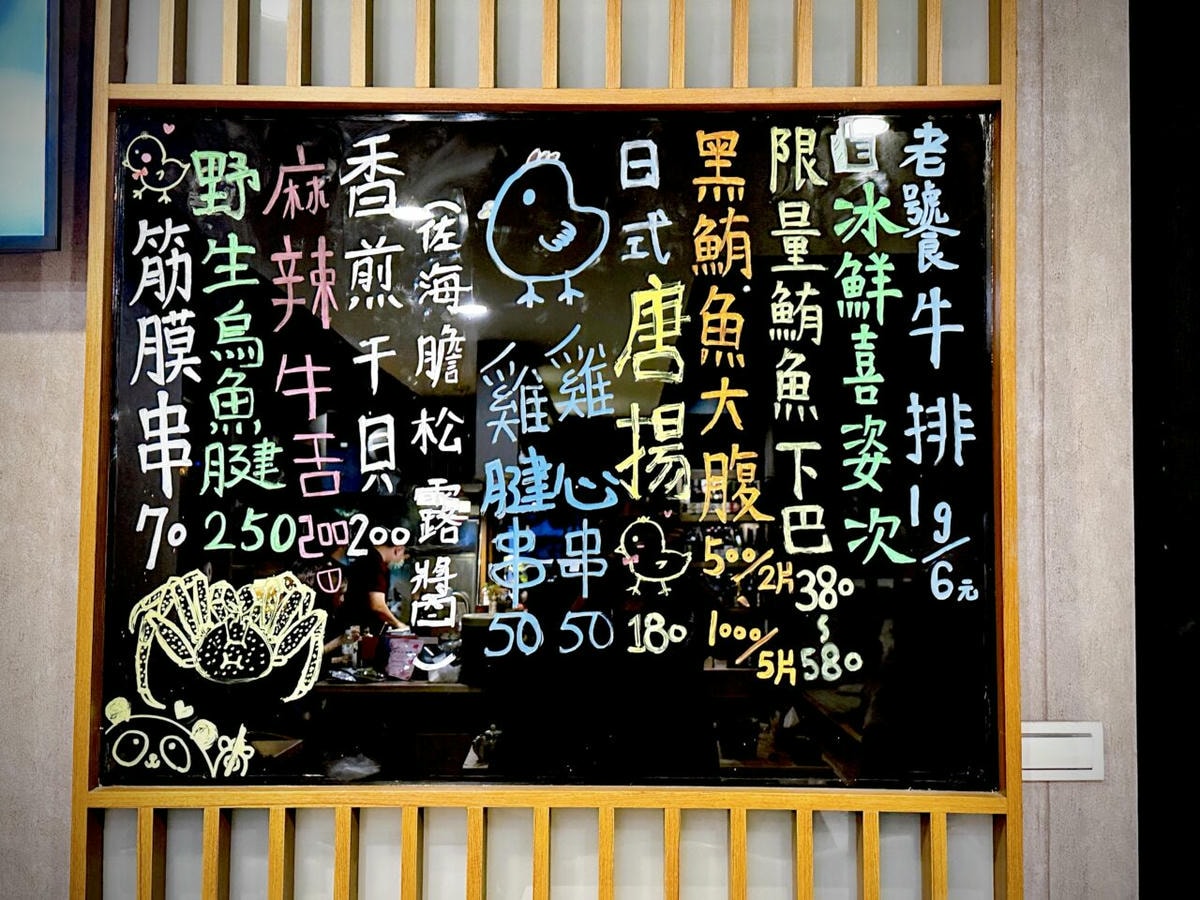 老饕牛排 1g/6元
日冰鮮喜姿次
限量鮪魚下巴 380~580
黑鮪魚大腹 500/2片 1000/5片
日式唐揚 180
雞心串 50
雞腱串 50
(佐海膽松露醬)
香煎干貝 200
麻辣牛舌 200
野生烏魚腱 250
筋膜串 70